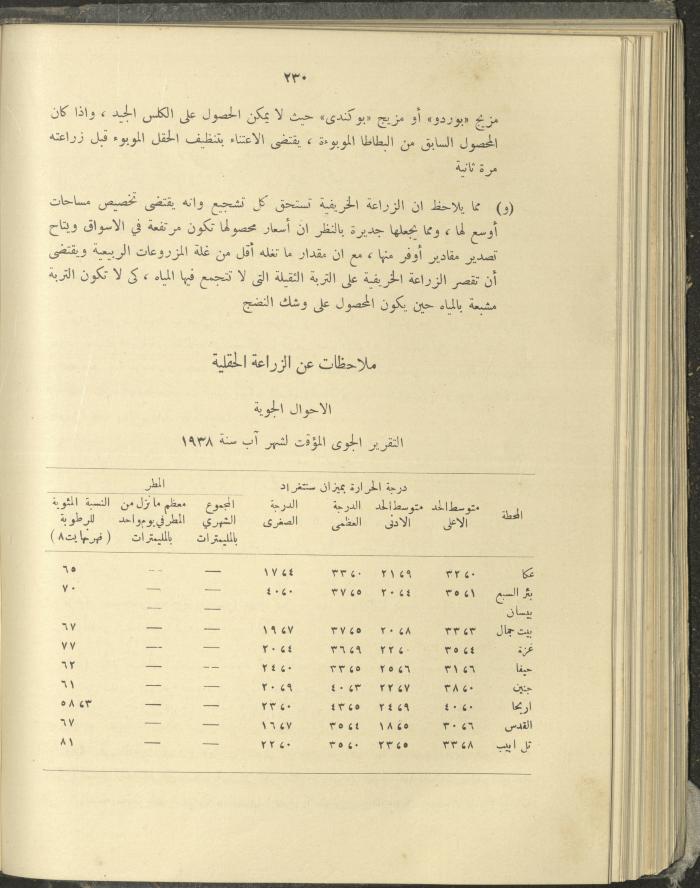 ٢٣٠
مزيج «بوردو» أو مزيج «بوكندى» حيث لا يمكن الحصول على الكلس الجيد ، واذا كان
المحصول السابق من البطاطا الموبوءة ، يقتضى الاعتناء بتنظيف الحقل الموبوء قبل زراعته
مرة ثانية
(و) مما يلاحظ ان الزراعة الخريفية تستحق كل تشجيع وانه يقتضى تخصيص مساحات
أوسع لها ، ومما يجعلها جديرة بالنظر ان أسعار محصولها تكون مرتفعة في الاسواق ويتاح
تصدير مقادير أوفر منها ، مع ان مقدار ما تغله أقل من غلة المزروعات الربيعية ويقتضى
أن تقصر الزراعة الخريفية على التربة الثقيلة التى لا تتجمع فيها المياه ، كى لا تكون التربة
مشبعة بالمياه حين يكون المحصول على وشك النضج
ملاحظات عن الزراعة الحقلية
الاحوال الجوية
التقرير الجوى المؤقت لشهر آب سنة ١٩٣٨
درجة الحرارة بميزان سنتغراد المطر
المحطة متوسط الحد الاعلى متوسط الحد الادنى الدرجة العظمى الدرجة الصغرى المجموع الشهري بالمليمترات معظم ما نزل من المطر في يوم واحد بالمليمترات النسبة المئوية للرطوبة (فهرنهايت ٨)
عكا ٣٢،٠ ٢١،٩ ٣٣،٠ ١٧،٤ — — ٦٥
بئر السبع ٣٥،١ ٢٠،٤ ٣٧،٥ ٤٠،٠ — — ٧٠
بيسان — —
بيت جمال ٣٣،٣ ٢٠،٨ ٣٧،٥ ١٩،٧ — — ٦٧
غزة ٣٥،٤ ٢٢،٠ ٣٦،٩ ٢٠،٤ — — ٧٧
حيفا ٣١،٦ ٢٥،٦ ٣٣،٥ ٢٤،٠ — — ٦٢
جنين ٣٨،٠ ٢٢،٧ ٤٠،٣ ٢٠،٩ — — ٦١
اريحا ٤٠،٠ ٢٤،٩ ٤٣،٥ ٢٣،٠ — — ٥٨،٣
القدس ٣٠،٦ ١٨،٥ ٣٥،٤ ١٦،٧ — — ٦٧
تل ابيب ٣٣،٨ ٢٣،٥ ٣٥،٠ ٢٢،٠ — — ٨١